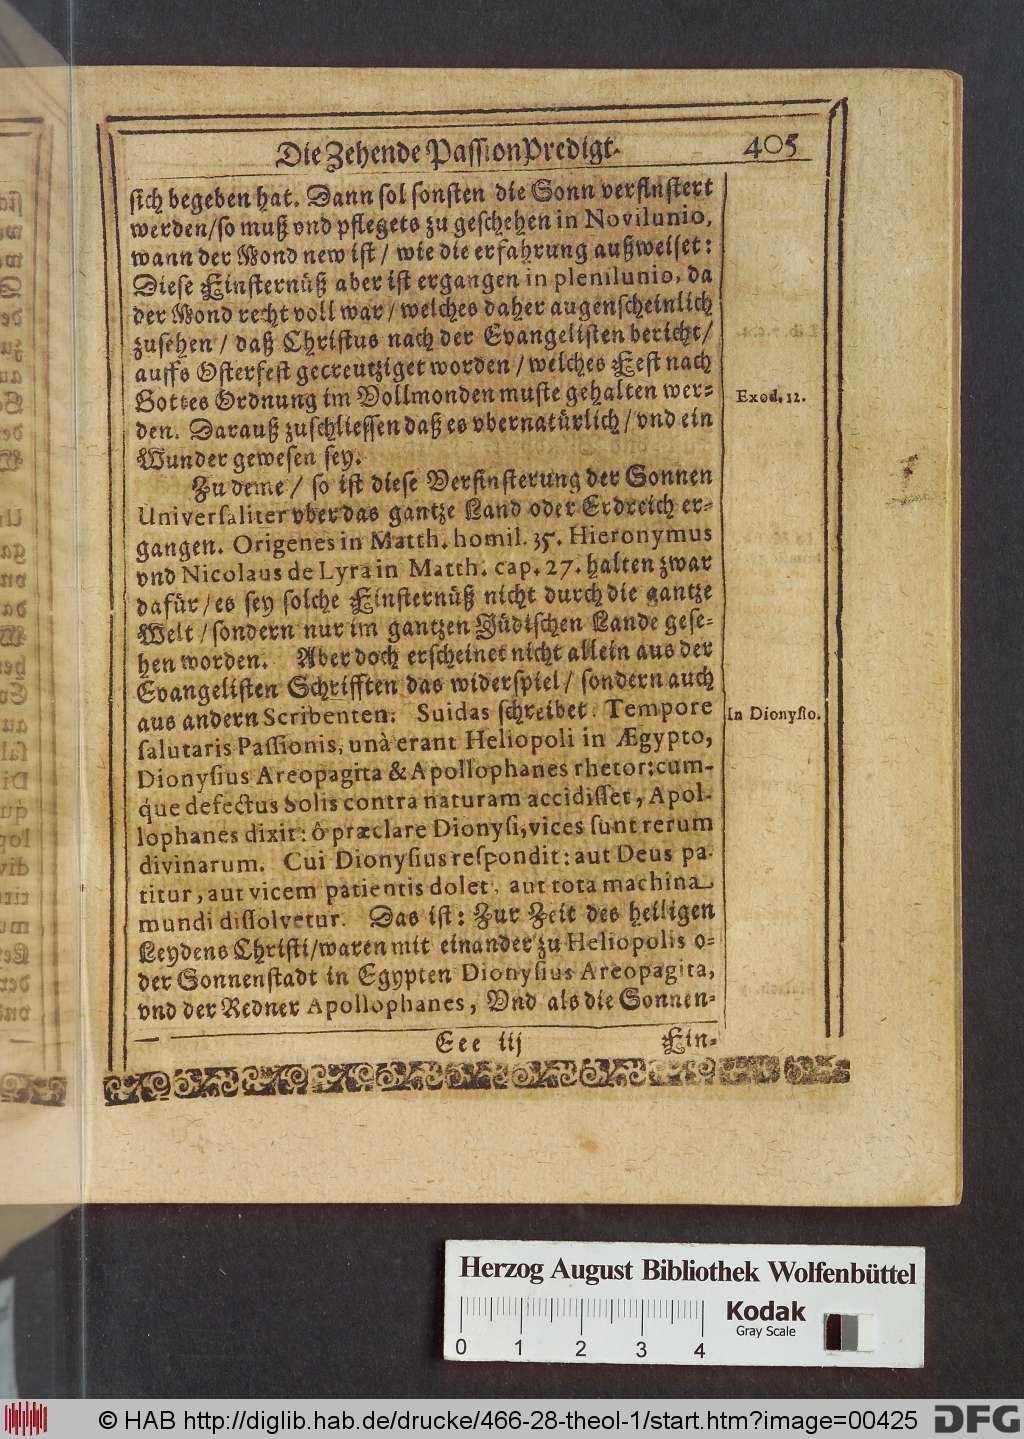 Die Zehende PassionPredigt. 405
sich begeben hat. Dann sol sonsten die Sonn verfinstert
werden/so muß vnd pflegets zu geschehen in Novilunio,
wann der Mond new ist/ wie die erfahrung außweiset:
Diese Finsternüß aber ist ergangen in plenilunio, da
der Mond recht voll war/ welches daher augenscheinlich
zusehen/ daß Christus nach der Evangelisten bericht/
auffs Osterfest gecreutziget worden/ welches Fest nach
Gottes Ordnung im Vollmonden muste gehalten wer-
Exod. 12.
den. Darauß zuschliessen daß es vbernatürlich/ vnd ein
Wunder gewesen sey.
Zu deme/ so ist diese Verfinsterung der Sonnen
Universaliter vber das gantze Land oder Erdreich er-
gangen. Origenes in Matth. homil. 35. Hieronymus
vnd Nicolaus de Lyra in Matth. cap. 27. halten zwar
dafür/ es sey solche Finsternüß nicht durch die gantze
Welt/ sondern nur im gantzen Jüdischen Lande gese-
hen worden. Aber doch erscheinet nicht allein aus der
Evangelisten Schrifften das widerspiel/ sondern auch
aus andern Scribenten. Suidas schreibet. Tempore
In Dionysio.
salutaris Passionis, unà erant Heliopoli in Ægypto,
Dionysius Areopagita & Apollophanes rhetor: cum-
q́ue defectus Solis contra naturam accidisset, Apol-
lophanes dixit: ô præclare Dionysi, vices sunt rerum
divinarum. Cui Dionysius respondit: aut Deus pa-
titur, aut vicem patientis dolet, aut tota machina
mundi dissolvetur. Das ist: Zur Zeit des heiligen
Leydens Christi/waren mit einander zu Heliopolis o-
der Sonnenstadt in Egypten Dionysius Areopagita,
vnd der Redner Apollophanes, Vnd als die Sonnen-
Eee iij Fin-
Herzog August Bibliothek Wolfenbüttel
0 1 2 3 4
Kodak
Gray Scale
© HAB http://diglib.hab.de/drucke/466-28-theol-1/start.htm?image=00425
DFG